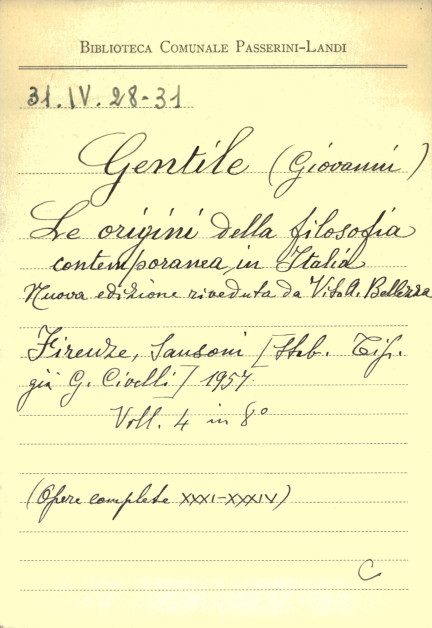 BIBLIOTECA COMUNALE PASSERINI-LANDI
31.IV.28-31
Gentile (Giovanni)
Le origini della filosofia
contemporanea in Italia
Nuova edizione riveduta da Vito A. Bellezza
Firenze, Sansoni [Stab. Tip.
già G. Civelli] 1957
Voll. 4 in 8°
(Opere complete XXXI-XXXIV)
C